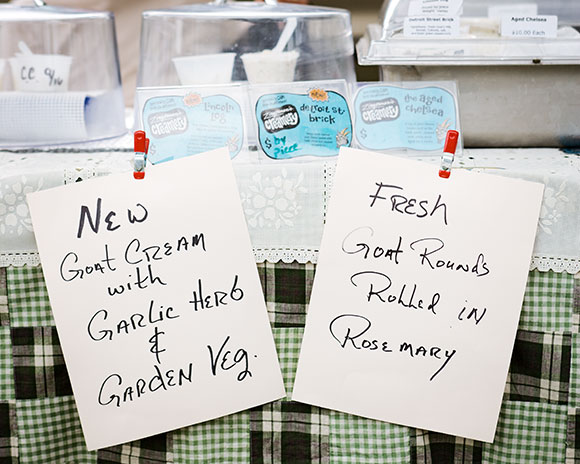 Detroit Street Brick
Aged Chelsea
$10.00 Each
C.C. 9/16
Creamery
Lincoln
Creamery
detroit st.
brick
$ by
Piece
Creamery
the aged
chelsea
$
NEW
Goat Cream
with
Garlic Herb
&
Garden Veg.
Fresh
Goat Rounds
Rolled in
Rosemary